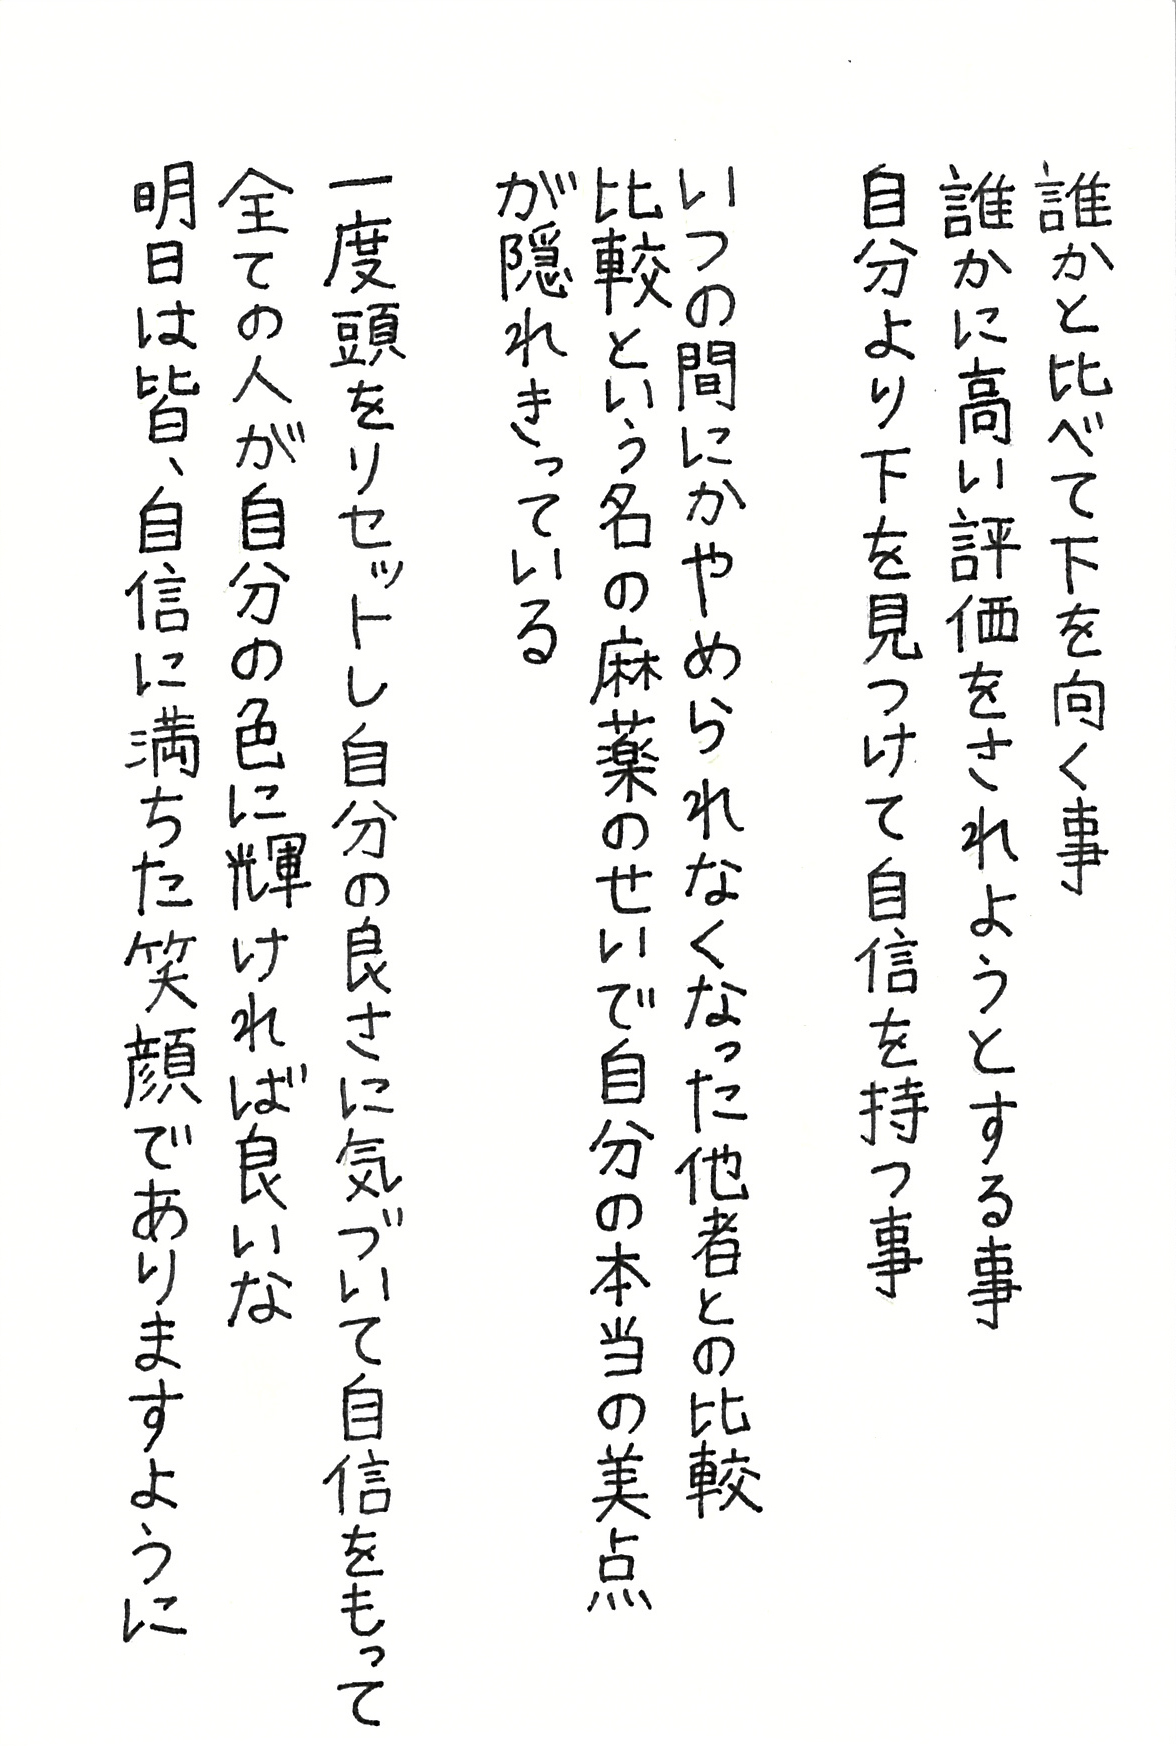 誰かと比べて下を向く事
誰かに高い評価をされようとする事
自分より下を見つけて自信を持つ事
いつの間にかやめられなくなった他者との比較
比較という名の麻薬のせいで自分の本当の美点
が隠れきっている
一度頭をリセットし自分の良さに気づいて自信をもって
全ての人が自分の色に輝ければ良いな
明日は皆、自信に満ちた笑顔でありますように